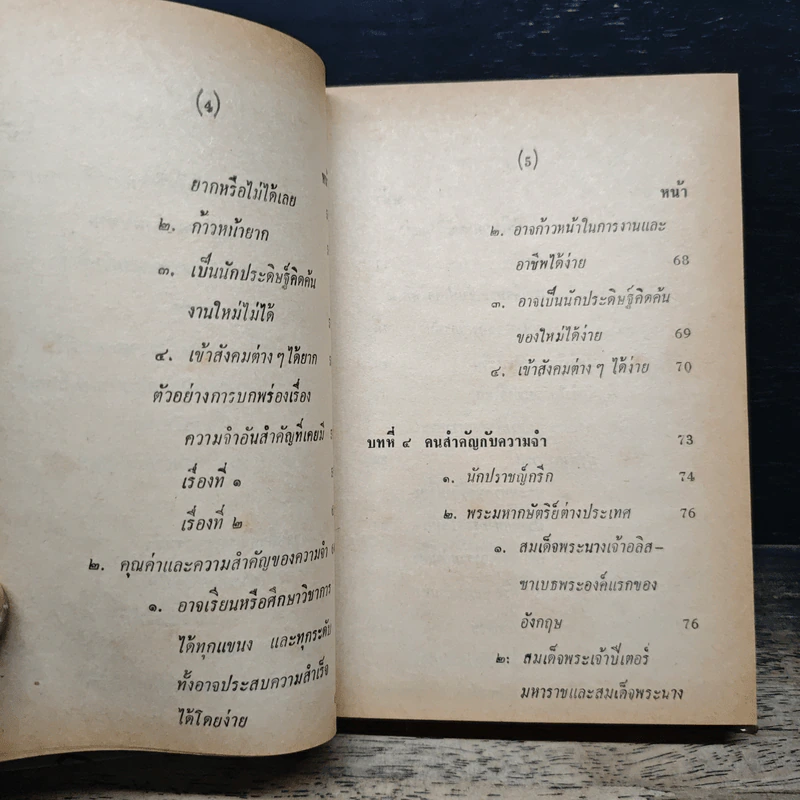 (4)
ยากหรือไม่ได้เลย
๒. ก้าวหน้ายาก
๓. เป็นนักประดิษฐ์คิดค้น
งานใหม่ไม่ได้
๔. เข้าสังคมต่าง ๆ ได้ยาก
ตัวอย่างการบกพร่องเรื่อง
ความจำอันสำคัญที่เคยมี
เรื่องที่ ๑
เรื่องที่ ๒
๒. คุณค่าและความสำคัญของความจำ
๑. อาจเรียนหรือศึกษาวิชาการ
ได้ทุกแขนง และทุกระดับ
ทั้งอาจประสบความสำเร็จ
ได้โดยง่าย
(5)
หน้า
๒. อาจก้าวหน้าในการงานและ
อาชีพได้ง่าย 68
๓. อาจเป็นนักประดิษฐ์คิดค้น
ของใหม่ได้ง่าย 69
๔. เข้าสังคมต่าง ๆ ได้ง่าย 70
บทที่ ๔ คนสำคัญกับความจำ 73
๑. นักปราชญ์กรีก 74
๒. พระมหากษัตริย์ต่างประเทศ 76
๑. สมเด็จพระนางเจ้าอลิส-
ซาเบธพระองค์แรกของ
อังกฤษ 76
๒: สมเด็จพระเจ้าปีเตอร์
มหาราชและสมเด็จพระนาง